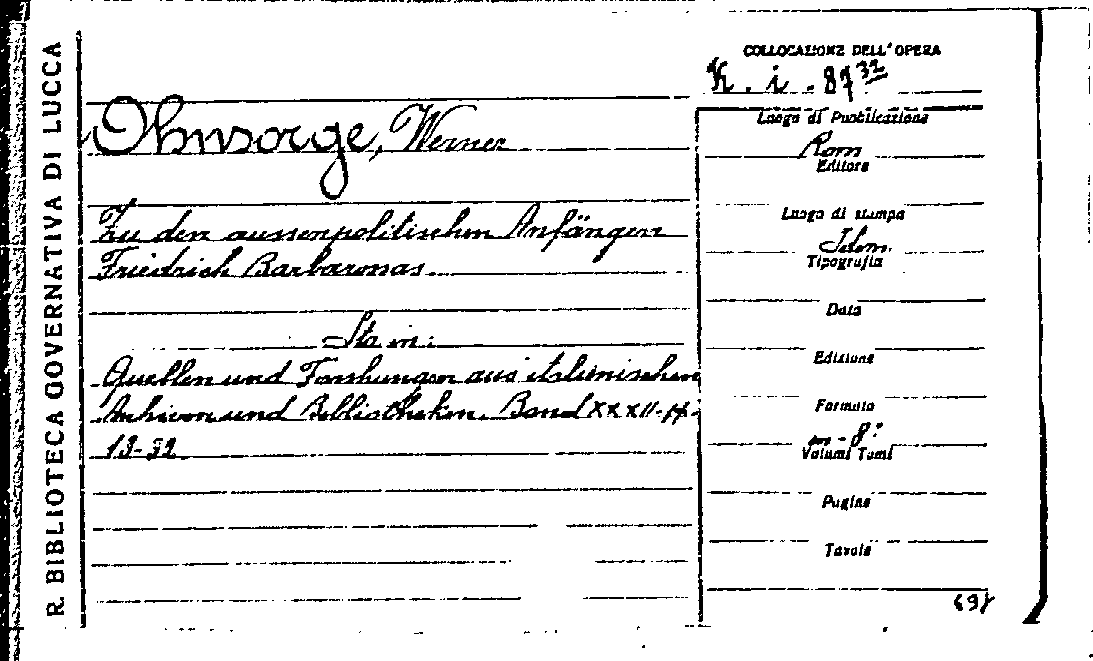 R. BIBLIOTECA GOVERNATIVA DI LUCCA
COLLOCAZIONE DELL'OPERA
K. i. 87 32
Ohnsorge, Werner
Zu den aussenpolitischen Anfängen
Friedrich Barbarossas
Sta in:
Quellen und Forschungen aus italienischen
Archiven und Bibliotheken. Band XXXII-pp.
13-32
Luogo di Pubblicazione
Rom
Editore
Luogo di stampa
Idem.
Tipografia
Data
Edizione
Formato
in-8°
Volumi Tomi
Pagine
Tavole